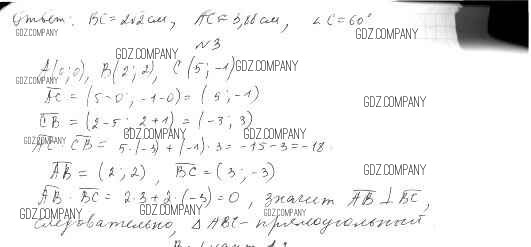 Ответ: BC = 2√2 см, AC = 3,86 см, ∠C = 60°
GDZ.COMPANY GDZ.COMPANY
№3
GDZ.COMPANY
A(0; 0), B(2; 2), C(5; -1) GDZ.COMPANY
GDZ.COMPANY
AC = (5-0; -1-0) = (5; -1)
GDZ.COMPANY
CB = (2-5; 2+1) = (-3; 3)
GDZ.COMPANY GDZ.COMPANY GDZ.COMPANY
AC · CB = 5·(-3) + (-1)·3 = -15-3 = -18.
AB = (2; 2), BC = (3; -3) GDZ.COMPANY
AB · BC = 2·3 + 2·(-3) = 0, значит AB ⊥ BC,
GDZ.COMPANY GDZ.COMPANY GDZ.COMPANY
следовательно, △ABC - прямоугольный